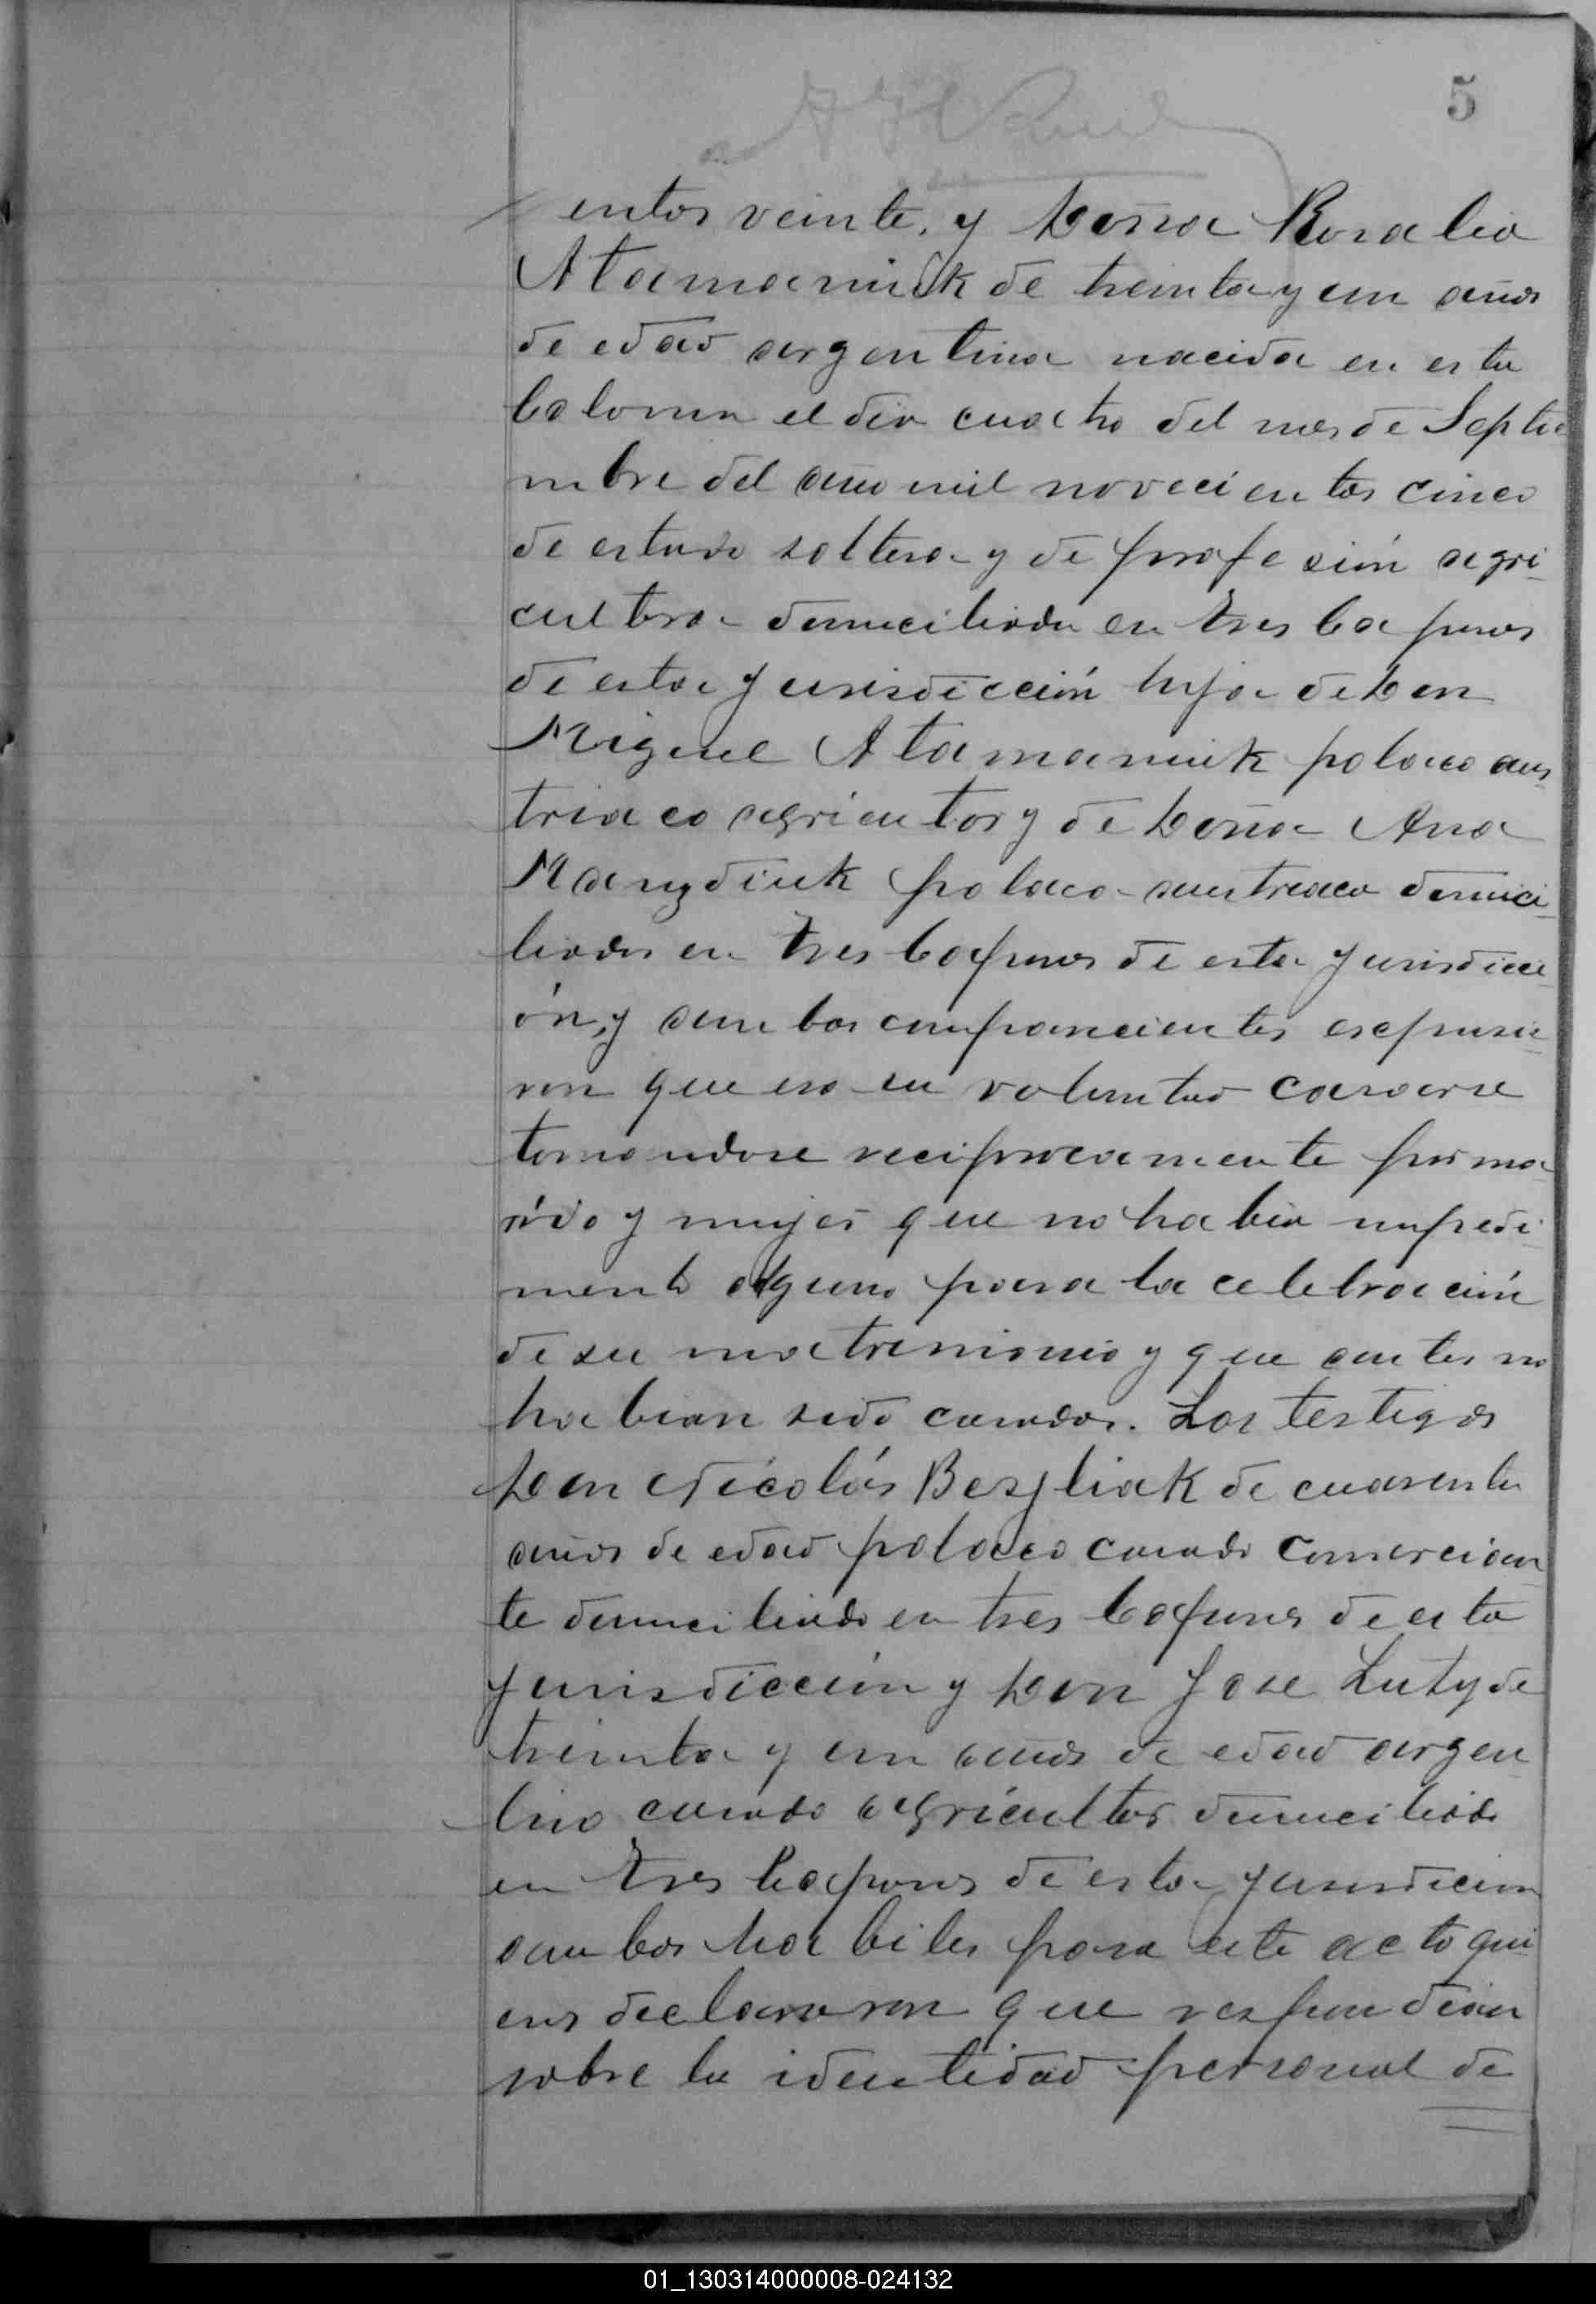 5
entos veinte, y Doña Rosalia
Atamaniuk de treinta y un años
de edad argentina nacida en esta
Colonia el dia cuatro del mes de Septie
mbre del año mil novecientos cinco
de estado soltera y de profesión agri-
cultora domiciliada en tres Capones
de esta jurisdicción hija de Don
Miguel Atamaniuk polaco aus
triaco agricultor y de Doña Ana
polaca austriaca domici-
liados en tres Capones de esta jurisdicci-
ón, y ambos comparecientes expusie-
ron que era su voluntad casarse
tomandose reciprocamente por ma-
rido y mujer que no habia impedi-
mento alguno para la celebración
de su matrimonio y que antes no
habian sido casados. Los testigos
Don Nicolás Bezgliak de cuarenta
años de edad polaco casado comercian-
te domiciliado en tres Capones de esta
jurisdicción y Don Jose Luty de
treinta y un años de edad argen
tino casado agricultor domiciliado
en tres Capones de esta jurisdiccion
ambos habiles para este acto qui
enes declararon que respondian
sobre la identidad personal de
01_130314000008-024132